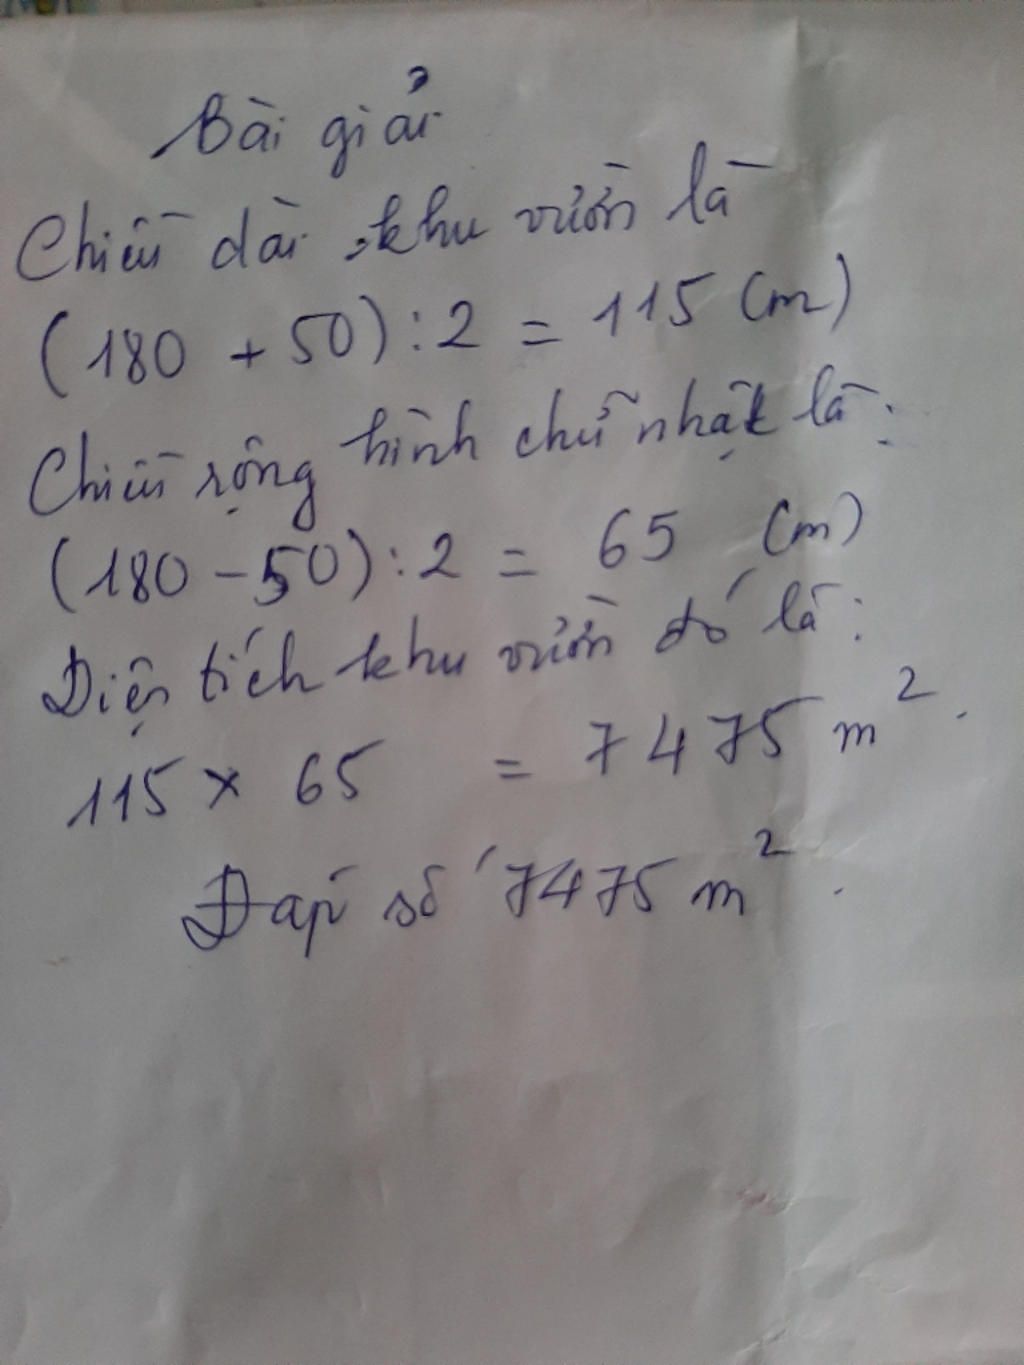 Bài giải
Chiều dài khu vườn là
(180 + 50) : 2 = 115 (m)
Chiều rộng hình chữ nhật là :
(180 - 50) : 2 = 65 (m)
Diện tích khu vườn đó là :
115 x 65 = 7475 m².
Đáp số 7475 m².